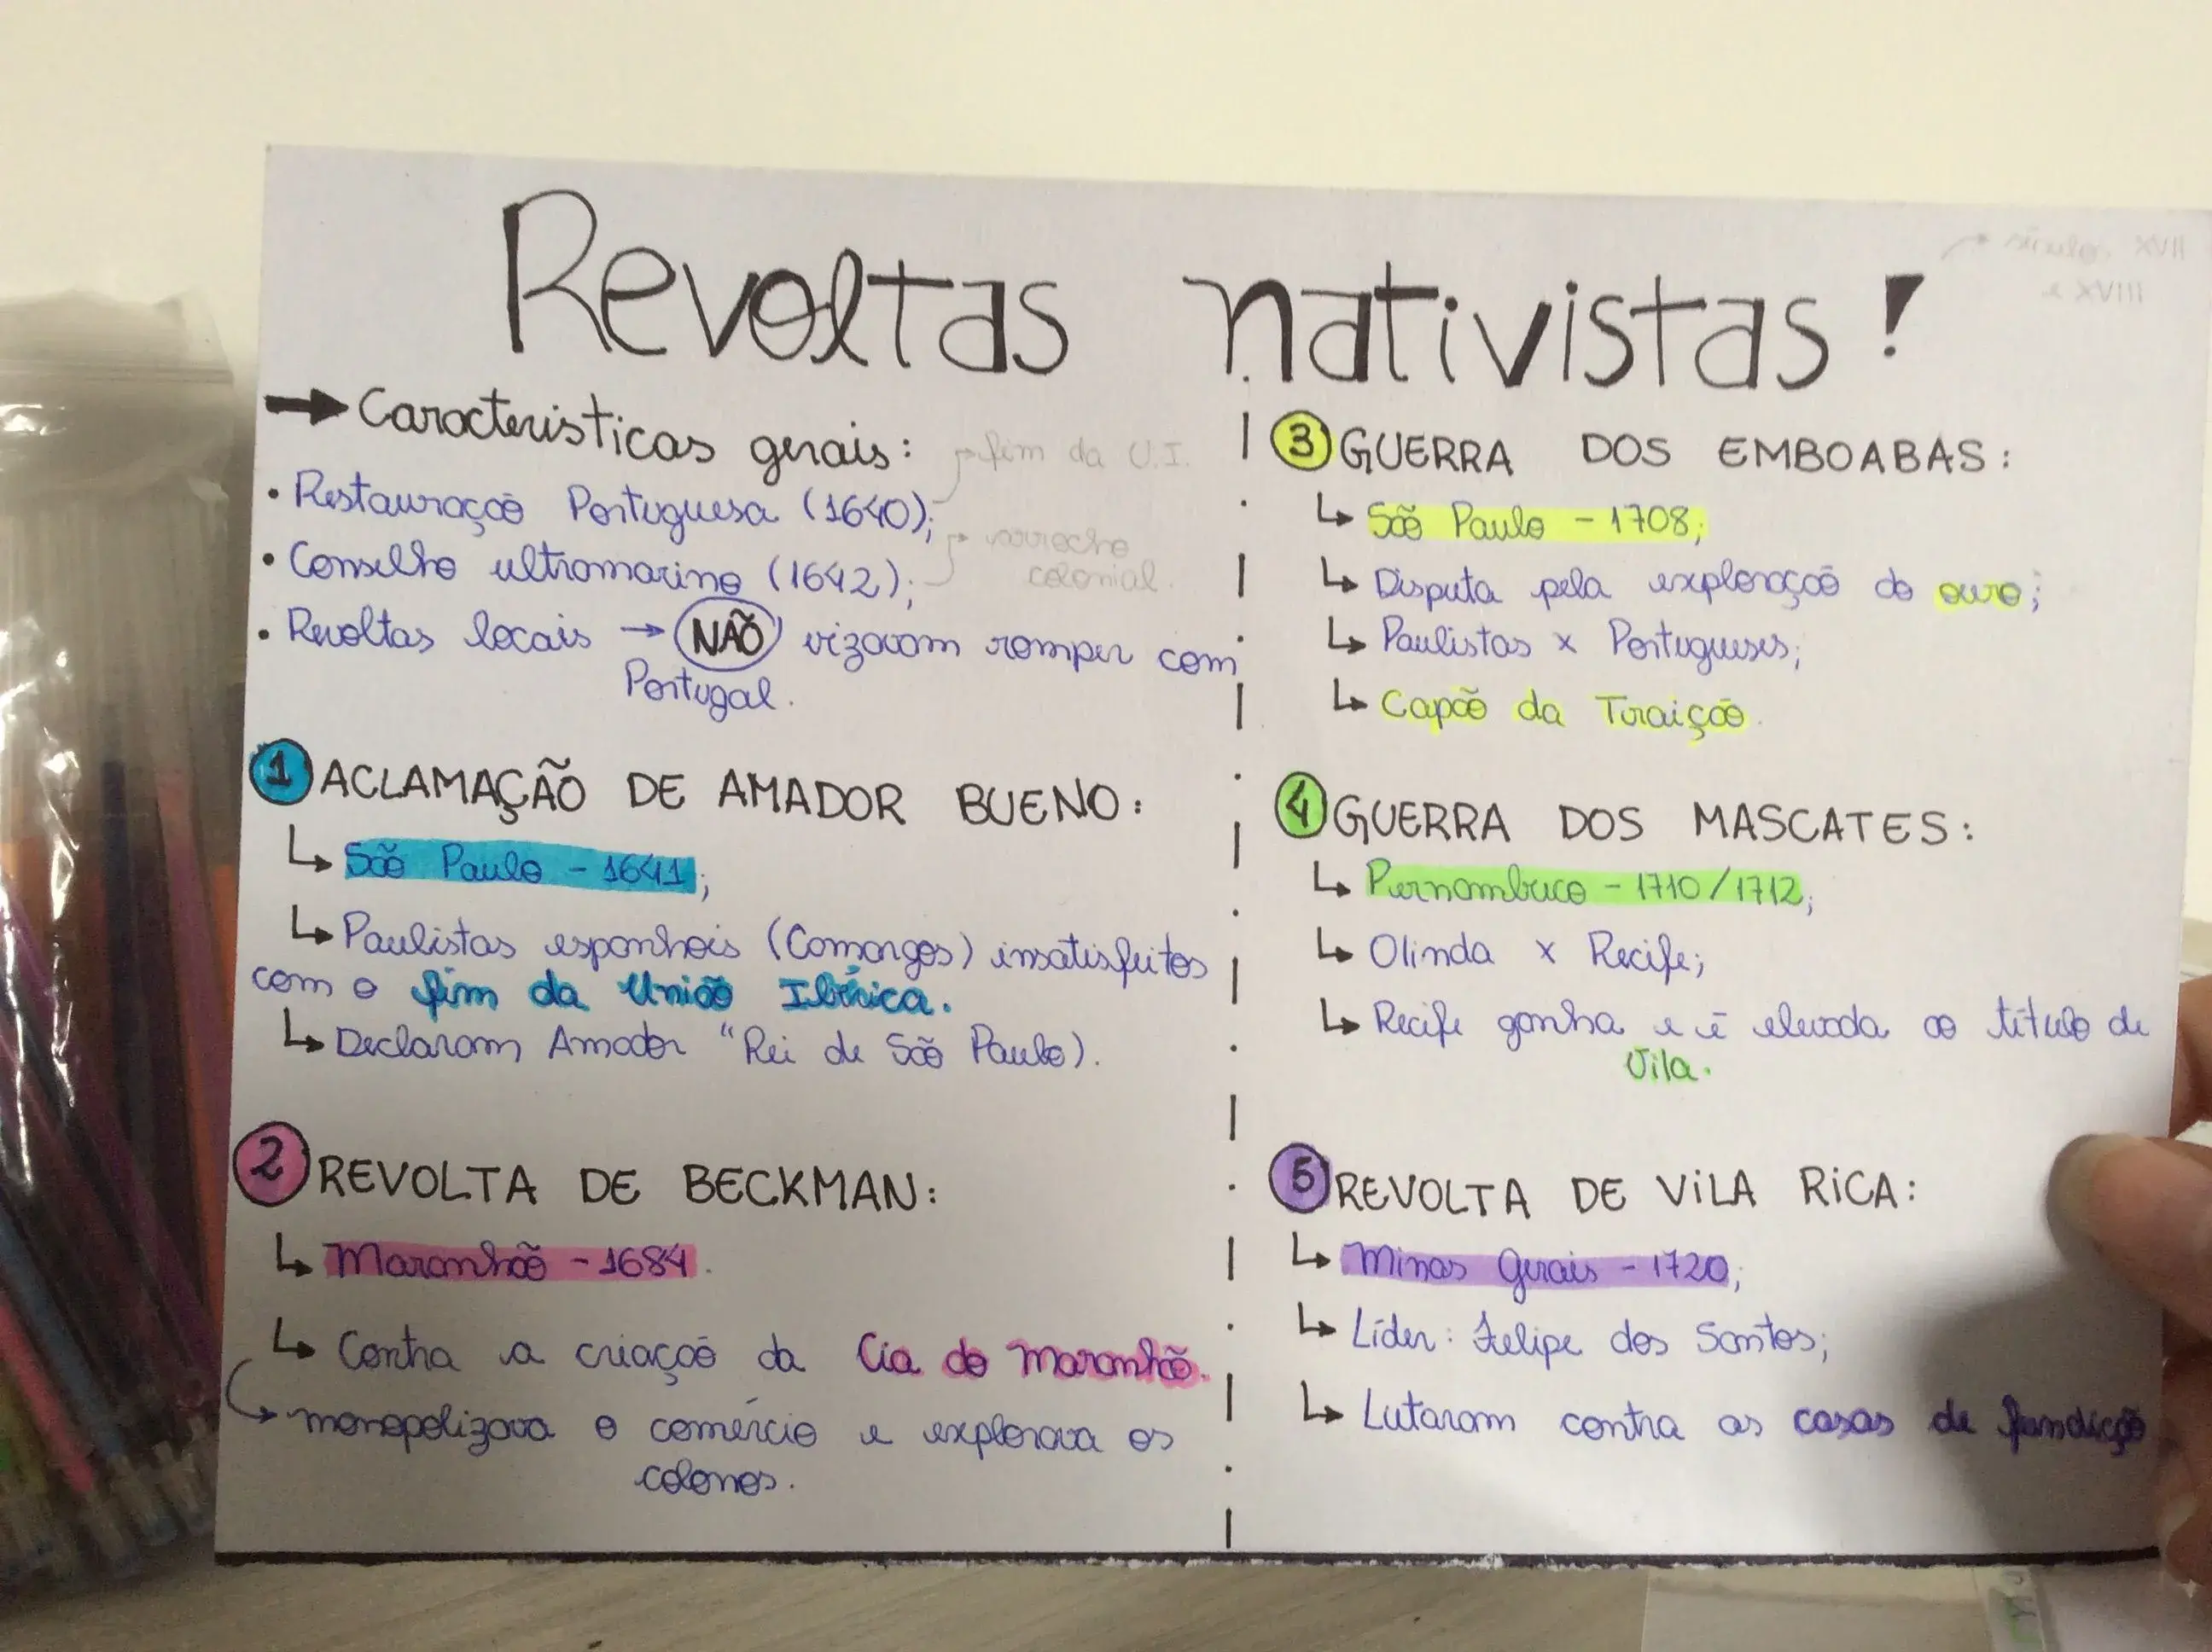 Revoltas nativistas!
→ Características gerais:
• Restauração Portuguesa (1640); → fim da U.I.
• Conselho ultramarino (1642); → arrocho
colonial.
• Revoltas locais → NÃO vizavam romper com
Portugal.
1 ACLAMAÇÃO DE AMADOR BUENO:
↳ São Paulo - 1641;
↳ Paulistas espanhois (Camargos) insatisfeitos
com o fim da União Ibérica.
↳ Declaram Amador "Rei de São Paulo).
2 REVOLTA DE BECKMAN:
↳ Maranhão - 1684.
↳ Contra a criação da Cia do Maranhão.
↳ monopolizava o comércio e explorava os
colonos.
3 GUERRA DOS EMBOABAS:
↳ São Paulo - 1708;
↳ Disputa pela exploração do ouro;
↳ Paulistas x Portugueses;
↳ Capão da Traição.
4 GUERRA DOS MASCATES:
↳ Pernambuco - 1710/1712;
↳ Olinda x Recife;
↳ Recife ganha e é elevada ao título de
Vila.
5 REVOLTA DE VILA RICA:
↳ Minas Gerais - 1720;
↳ Líder: Felipe dos Santos;
↳ Lutaram contra as casas de fundição